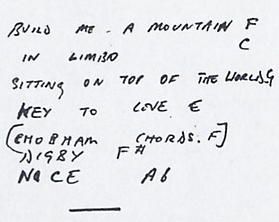 BUILD ME. A MOUNTAIN F
IN LIMBO C
SITTING ON TOP OF THE WORLD G
KEY TO LOVE E
[CHOBHAM CHORDS. F]
DIGBY F#
NICE Ab